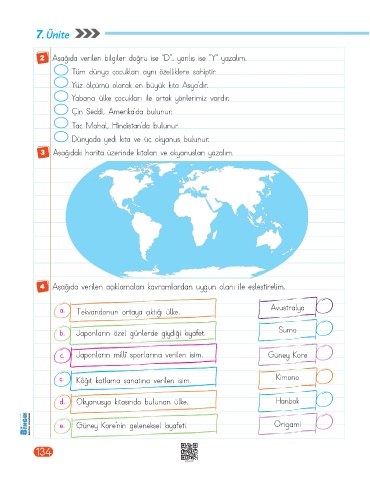 7. Ünite
2 Aşağıda verilen bilgiler doğru ise "D", yanlış ise "Y" yazalım.
Tüm dünya çocukları aynı özelliklere sahiptir.
Yüz ölçümü olarak en büyük kıta Asya'dır.
Yabancı ülke çocukları ile ortak yönlerimiz vardır.
Çin Seddi, Amerika'da bulunur.
Tac Mahal, Hindistan'da bulunur.
Dünyada yedi kıta ve üç okyanus bulunur.
3 Aşağıdaki harita üzerinde kıtaları ve okyanusları yazalım.
4 Aşağıda verilen açıklamaları kavramlardan uygun olanı ile eşleştirelim.
a. Tekvandonun ortaya çıktığı ülke. Avustralya
b. Japonların özel günlerde giydiği kıyafet. Sumo
c. Japonların millî sporlarına verilen isim. Güney Kore
ç. Kâğıt katlama sanatına verilen isim. Kimono
d. Okyanusya kıtasında bulunan ülke. Hanbok
e. Güney Kore'nin geleneksel kıyafeti. Origami
BİNGO
134